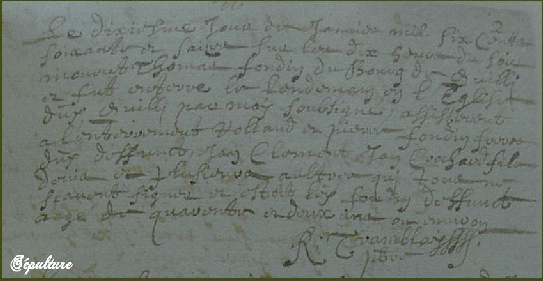 Le dixiesme Jour de Janvier mil six Cents
soixante et saize sur les dix heures du soir
mourut Thomas fondin du Bourg de
et fut enterré le lendemain en l Eglise
dudt par moy soubsigné, assisterent
a lenterrement Rolland et pierre fondin freres
dudt deffunct Jan Clement Jan Cochard fils
Denis et plusieurs aultres qui Tous ne
scavent signer et estoit ledt fondin deffunct
aagé de quarente et deux ans ou environ
R Tramblay
Sépulture